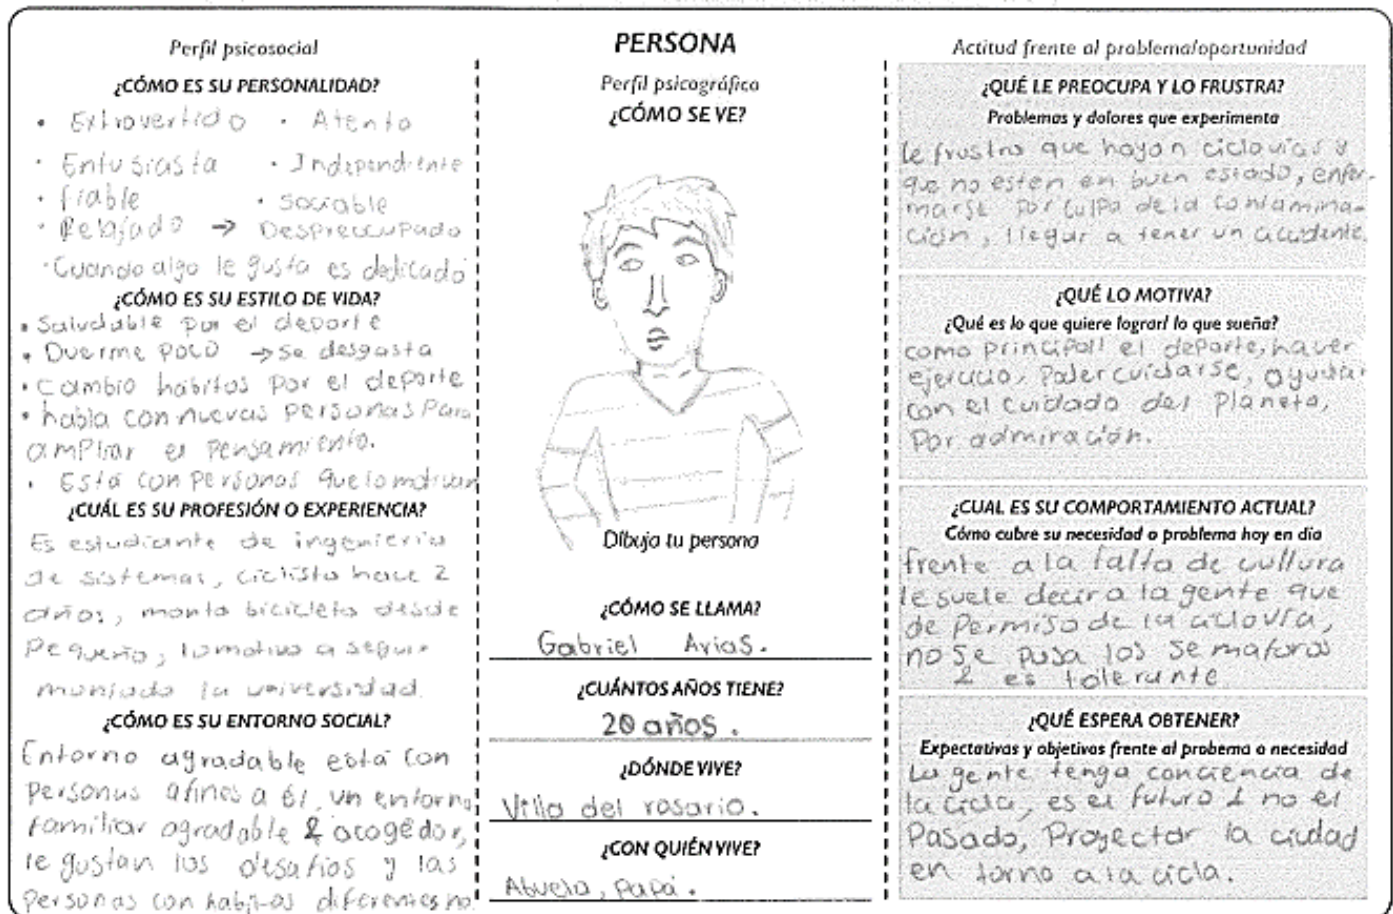 Perfil psicosocial
¿CÓMO ES SU PERSONALIDAD?
• Extrovertido • Atento
• Entusiasta • Independiente
• fiable • sociable
• Relajado → Despreocupado
• Cuando algo le gusta es dedicado
¿CÓMO ES SU ESTILO DE VIDA?
• Saludable por el deporte
• Duerme poco → se desgasta
• cambio habitos por el deporte
• habla con nuevas personas para
ampliar el pensamiento.
• Está con personas que lo motivan
¿CUÁL ES SU PROFESIÓN O EXPERIENCIA?
Es estudiante de ingenieria
de sistemas, ciclista hace 2
años, monta bicicleta desde
pequeño, lo motivo a seguir
montado la universidad.
¿CÓMO ES SU ENTORNO SOCIAL?
Entorno agradable está con
personas afines a él, un entorno
familiar agradable & acogedor,
le gustan los desafios y las
personas con habitos diferentes
PERSONA
Perfil psicográfico
¿CÓMO SE VE?
Dibuja tu persona
¿CÓMO SE LLAMA?
Gabriel Arias.
¿CUÁNTOS AÑOS TIENE?
20 años.
¿DÓNDE VIVE?
Villa del rosario.
¿CON QUIÉN VIVE?
Abuela, papá.
Actitud frente al problema/oportunidad
¿QUÉ LE PREOCUPA Y LO FRUSTRA?
Problemas y dolores que experimenta
le frustra que hayan ciclovias y
que no esten en buen estado, enfer-
marse por culpa de la contamina-
ción, llegar a tener un accidente.
¿QUÉ LO MOTIVA?
¿Qué es lo que quiere lograr/ lo que sueña?
como principal! el deporte, hacer
ejercicio, Poder cuidarse, ayudar
con el cuidado del planeta,
Por admiración.
¿CUAL ES SU COMPORTAMIENTO ACTUAL?
Cómo cubre su necesidad o problema hoy en día
frente a la falta de cultura
le suele decir a la gente que
de permiso de la ciclovía,
no se pasa los semaforos
& es tolerante
¿QUÉ ESPERA OBTENER?
Expectativas y objetivos frente al probema o necesidad
La gente tenga conciencia de
la cicla, es el futuro & no el
Pasado, Proyectar la ciudad
en torno a la cicla.